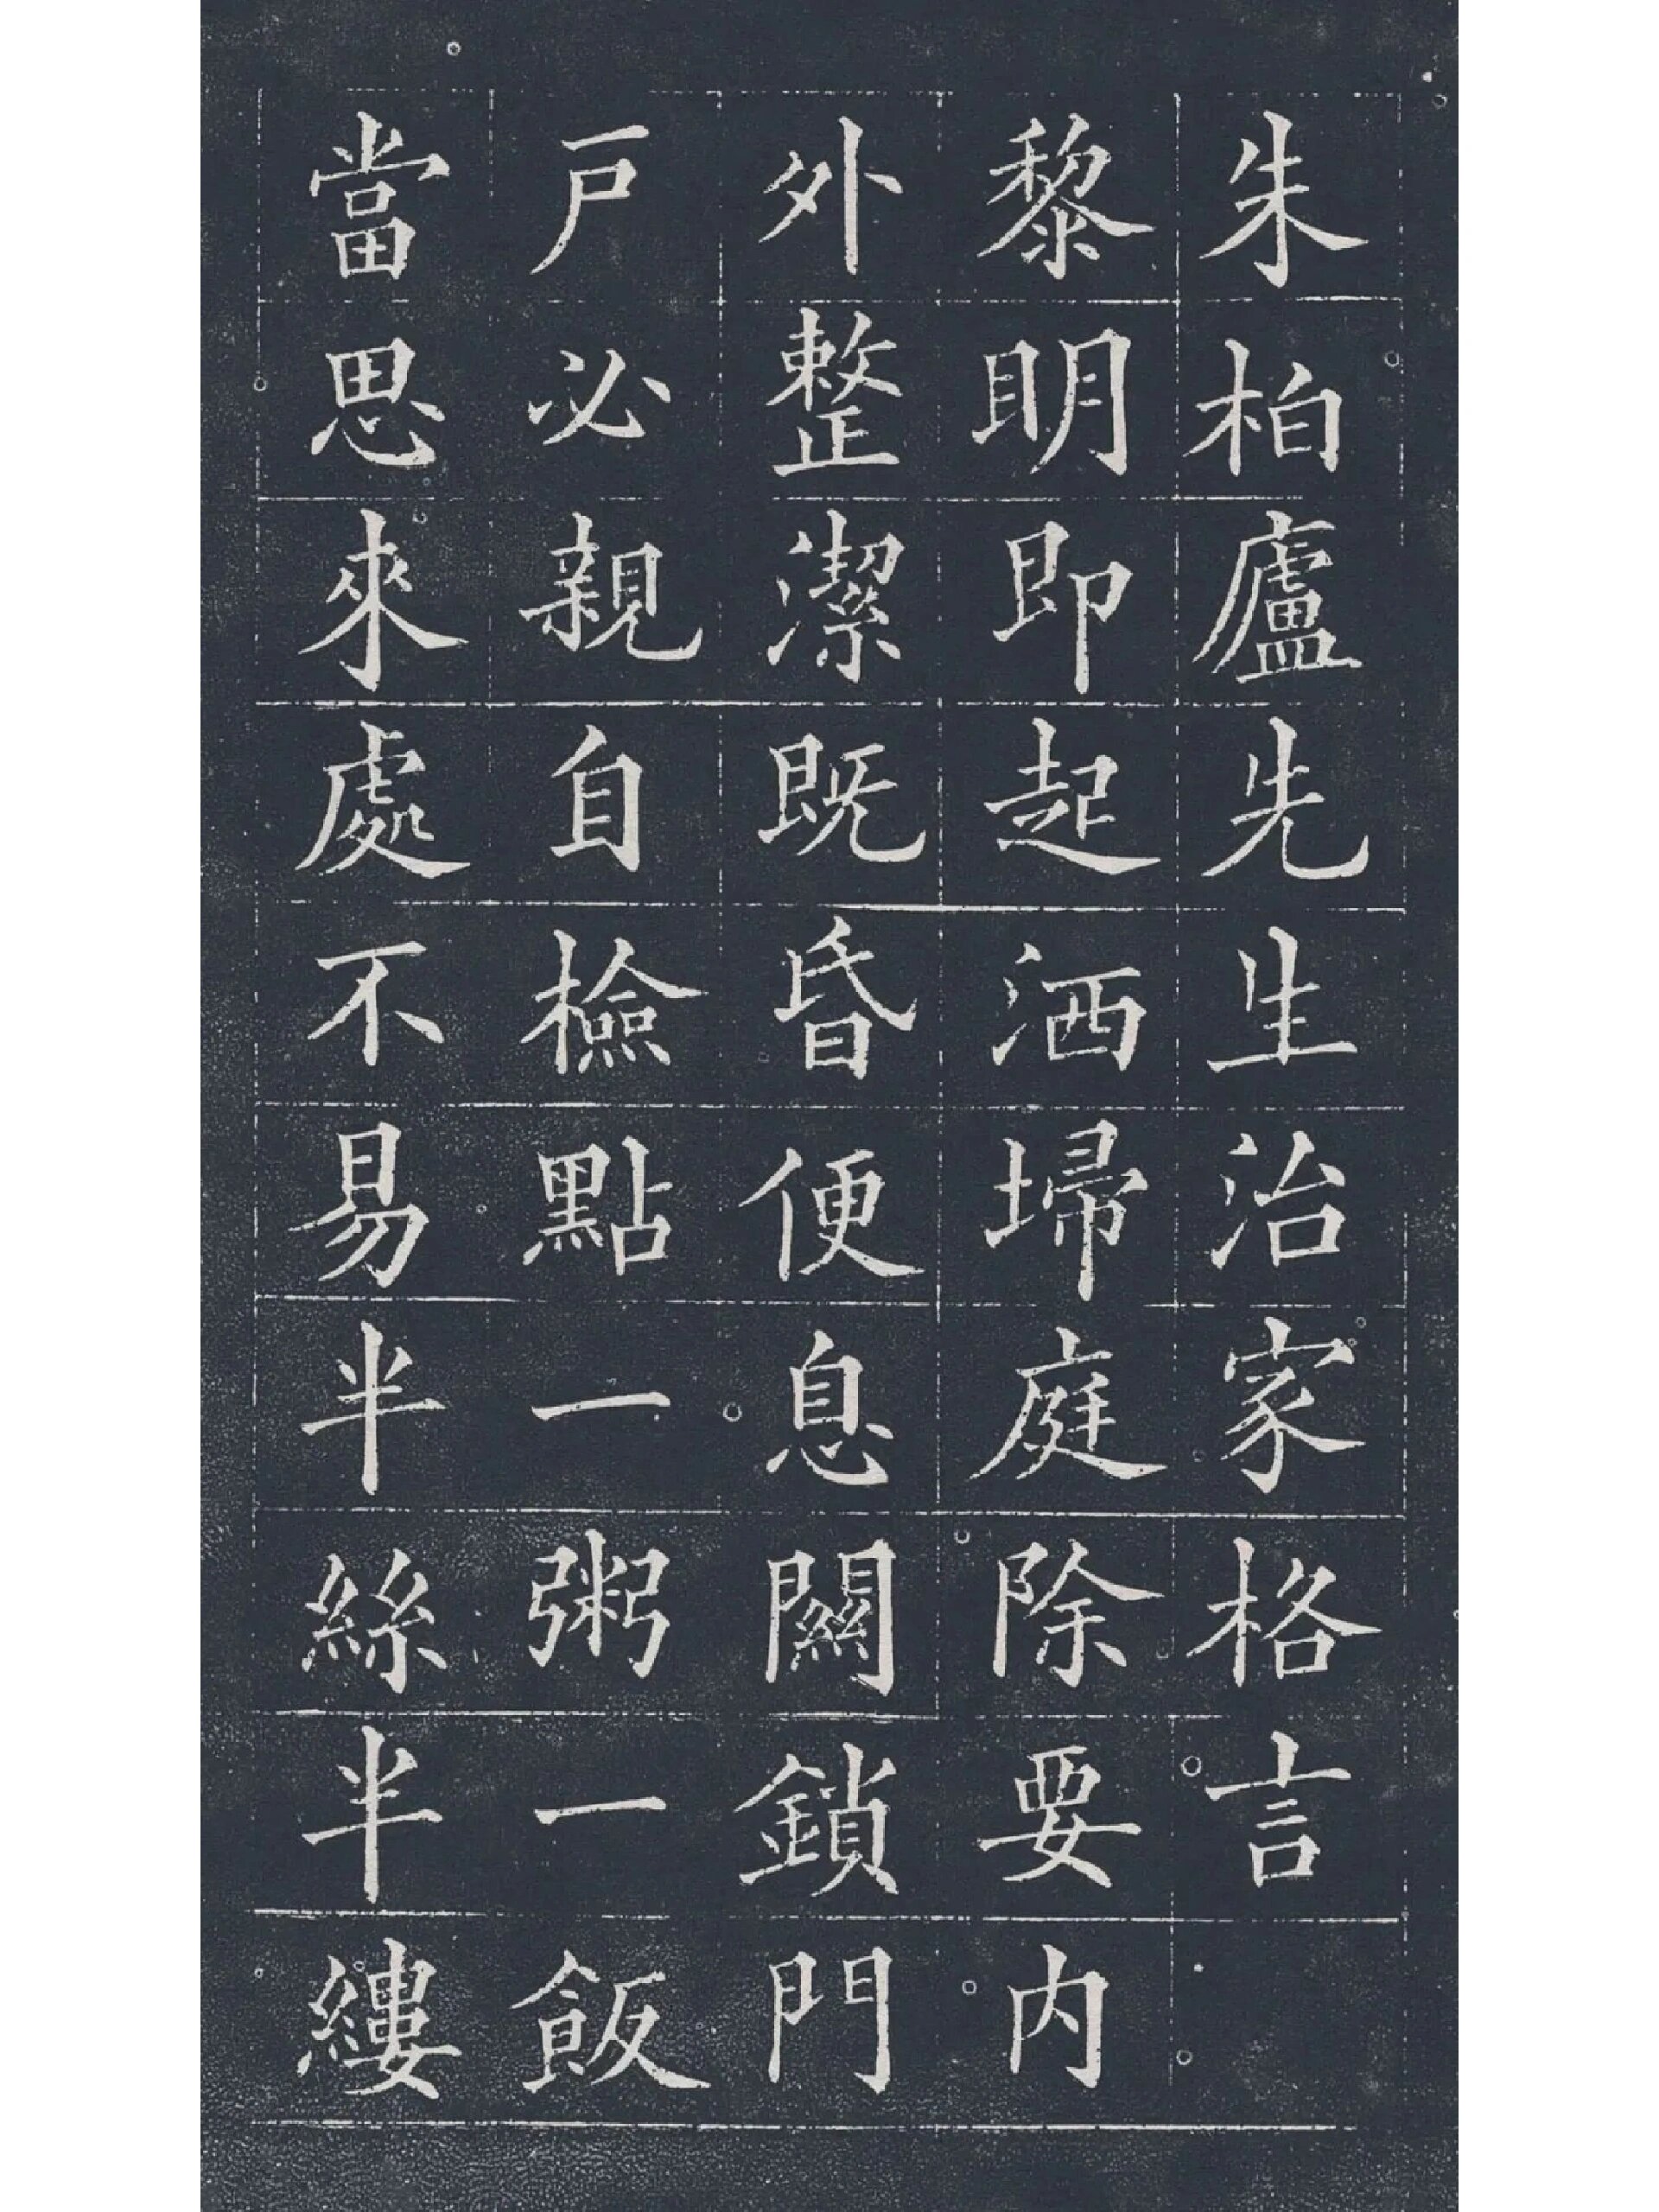 朱柏廬先生治家格言
黎明即起洒埽庭除要內
外整潔既昏便息關鎖門
戶必親自檢點一粥一飯
當思來處不易半絲半縷